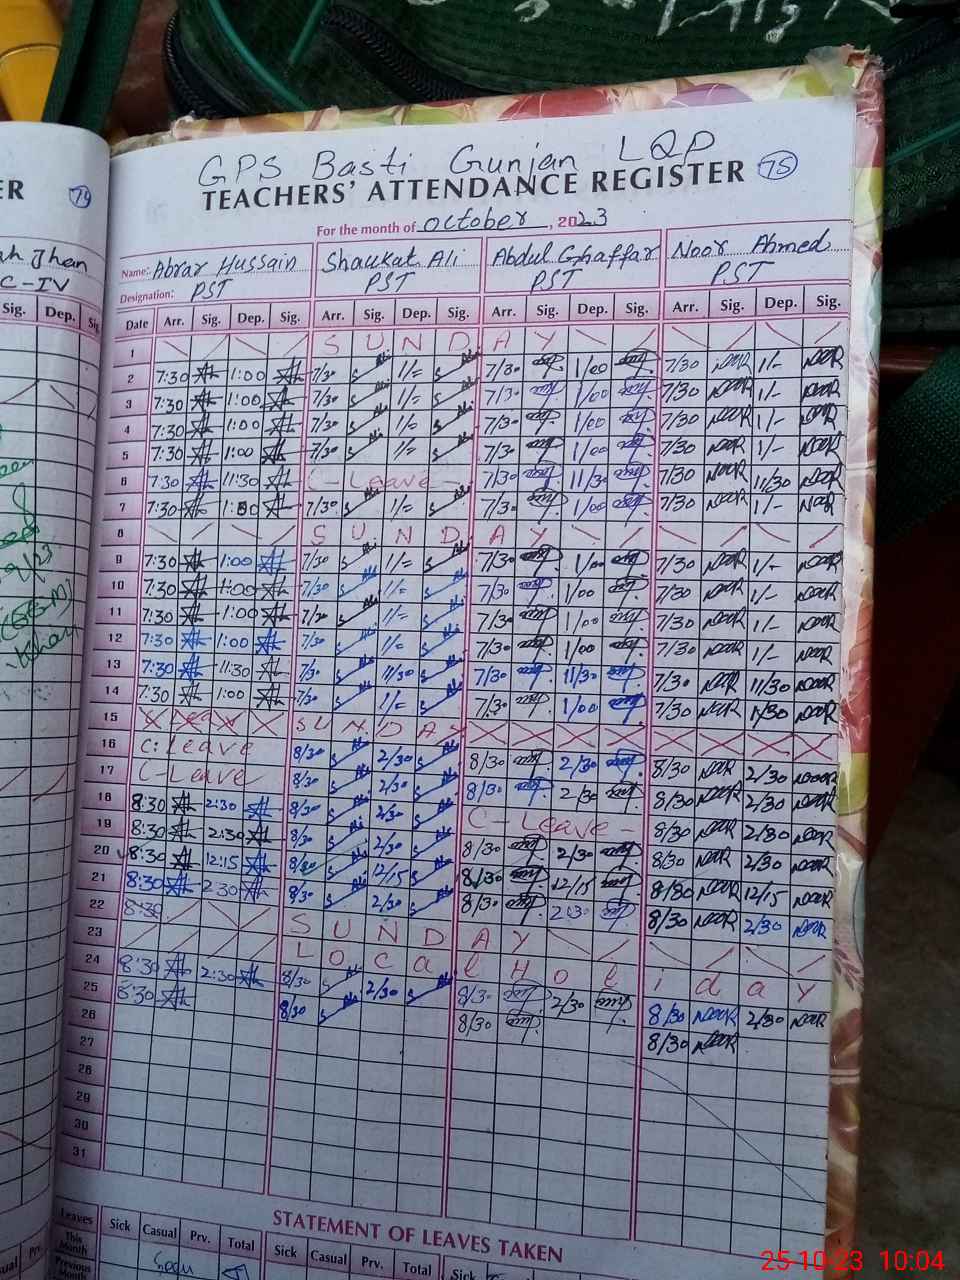 GPS Basti Gunjan LQP
TEACHERS' ATTENDANCE REGISTER 75
For the month of October, 2023
Name: Abrar Hussain Shaukat Ali Abdul Ghaffar Noor Ahmed
Designation: PST PST PST PST
Date Arr. Sig. Dep. Sig. Arr. Sig. Dep. Sig. Arr. Sig. Dep. Sig. Arr. Sig. Dep. Sig.
1 SUNDAY
2 7:30 1:00 7/30 1/= 7/30 1/00 7/30 NOOR 1/- NOOR
3 7:30 1:00 7/30 1/= 7/30 1/00 7/30 NOOR 1/- NOOR
4 7:30 1:00 7/30 1/= 7/30 1/00 7/30 NOOR 1/- NOOR
5 7:30 1:00 7/30 1/= 7/30 1/00 7/30 NOOR 1/- NOOR
6 7:30 11:30 C-Leave 7/30 11/30 7/30 NOOR 11/30 NOOR
7 7:30 1:00 7/30 1/= 7/30 1/00 7/30 NOOR 1/- NOOR
8 SUNDAY
9 7:30 1:00 7/30 1/= 7/30 1/00 7/30 NOOR 1/- NOOR
10 7:30 1:00 7/30 1/= 7/30 1/00 7/30 NOOR 1/- NOOR
11 7:30 1:00 7/30 1/= 7/30 1/00 7/30 NOOR 1/- NOOR
12 7:30 1:00 7/30 1/= 7/30 1/00 7/30 NOOR 1/- NOOR
13 7:30 11:30 7/30 11/30 7/30 11/30 7/30 NOOR 11/30 NOOR
14 7:30 1:00 7/30 1/= 7/30 1/00 7/30 NOOR 1/30 NOOR
15 SUNDAY
16 C. Leave 8/30 2/30 8/30 2/30 8/30 NOOR 2/30 NOOR
17 C-Leave 8/30 2/30 8/30 2/30 8/30 NOOR 2/30 NOOR
18 8:30 2:30 8/30 2/30 C-Leave- 8/30 NOOR 2/30 NOOR
19 8:30 2:30 8/30 2/30 8/30 2/30 8/30 NOOR 2/30 NOOR
20 8:30 12:15 8/30 12/15 8/30 12/15 8/30 NOOR 12/15 NOOR
21 8:30 2:30 8/30 2/30 8/30 2:30 8/30 NOOR 2/30 NOOR
22 8:30 SUNDAY
23 Local Holiday
24 8:30 2:30 8/30 2/30 8/30 2/30 8/30 NOOR 2/30 NOOR
25 8:30 8/30 8/30 8/30 NOOR
26
27
28
29
30
31
STATEMENT OF LEAVES TAKEN
Leaves Sick Casual Prv. Total Sick Casual Prv. Total Sick
This Month
Previous
25-10-23 10:04